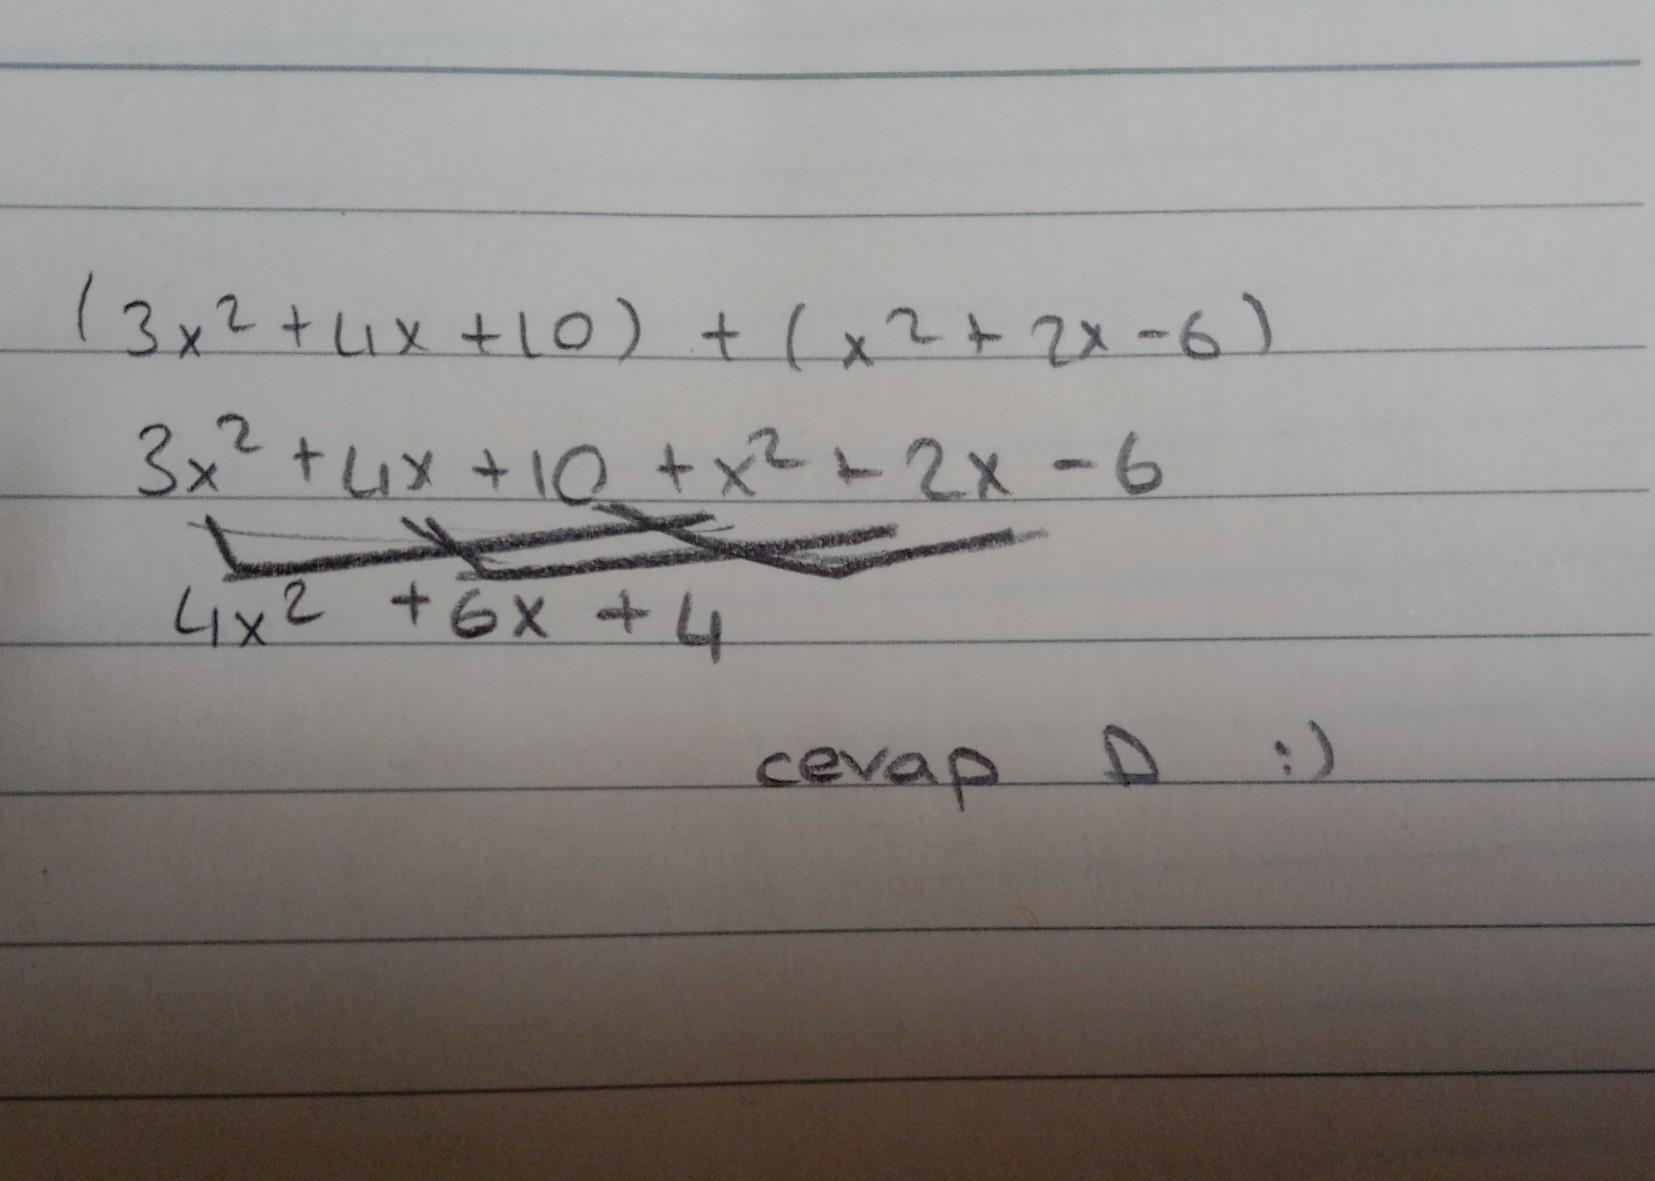 (3x² + 4x + 10) + (x² + 2x - 6)
3x² + 4x + 10 + x² + 2x - 6
4x² + 6x + 4
cevap D :)